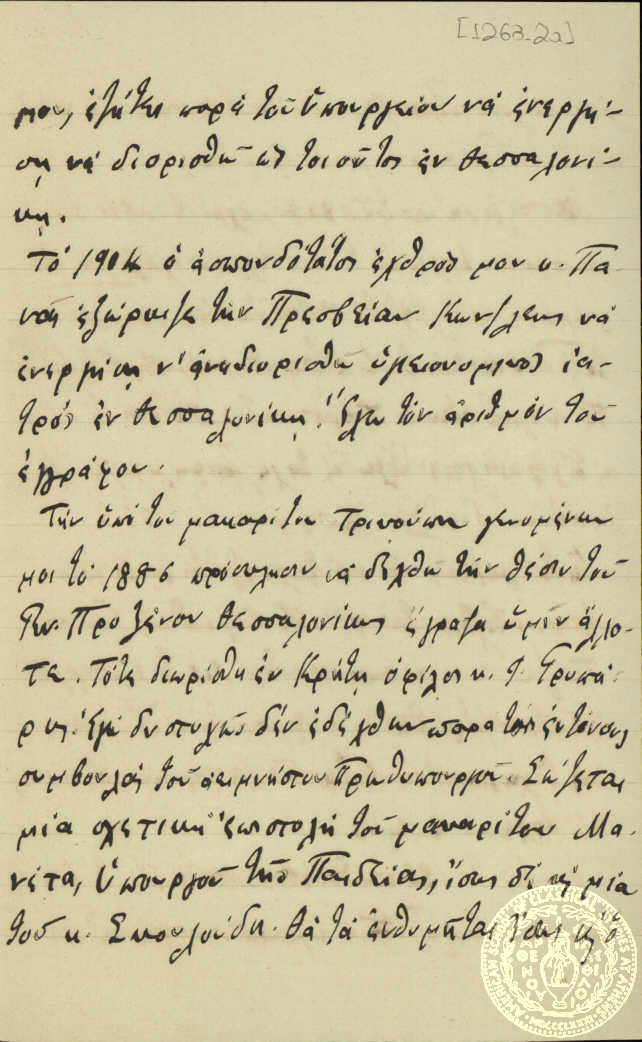 [1268-2a]
μου, ἐζήτει παρὰ τοῦ Ὑπουργείου νὰ ἐνεργή-
σῃ νὰ διορισθῶ ὡς τοιοῦτος ἐν Θεσσαλονί-
κῃ.
Τὸ 1904 ὁ ἀσπονδότατος ἐχθρός μου κ. Πα-
νᾶς ἐξώρκιζε τὴν Πρεσβείαν Κων/λεως νὰ
ἐνεργήσῃ ν' ἀναδιορισθῶ ὑγειονομικὸς ἰα-
τρός ἐν Θεσσαλονίκῃ. Ἔχω τὸν ἀριθμὸν τοῦ
ἐγγράφου.
Τὴν ὑπὸ του μακαρίτου Τρικούπη γενομένην
μοι τὸ 1886 πρόσκλησιν νὰ δεχθῶ τὴν θέσιν τοῦ
Γεν. Προξένου Θεσσαλονίκης ἔγραψα ὑμῖν ἄλλο-
τε. Τότε διωρίσθη ἐν Κρήτῃ ὁ φίλος κ. Γρυπά-
ρης. Ἐγὼ δυστυχῶς δέν ἐδέχθην παρὰ τὰς ἐντόνους
συμβουλὰς τοῦ ἀειμνήστου Πρωθυπουργοῦ. Σώζεται
μία σχετικὴ ἐπιστολὴ τοῦ μακαρίτου Μα-
νέτα, Ὑπουργοῦ τῆς Παιδείας, ἴσως δὲ κ μία
τοῦ κ. Σκουλούδη. Θὰ τὰ ἐνθυμῆται ἴσως κ ὁ